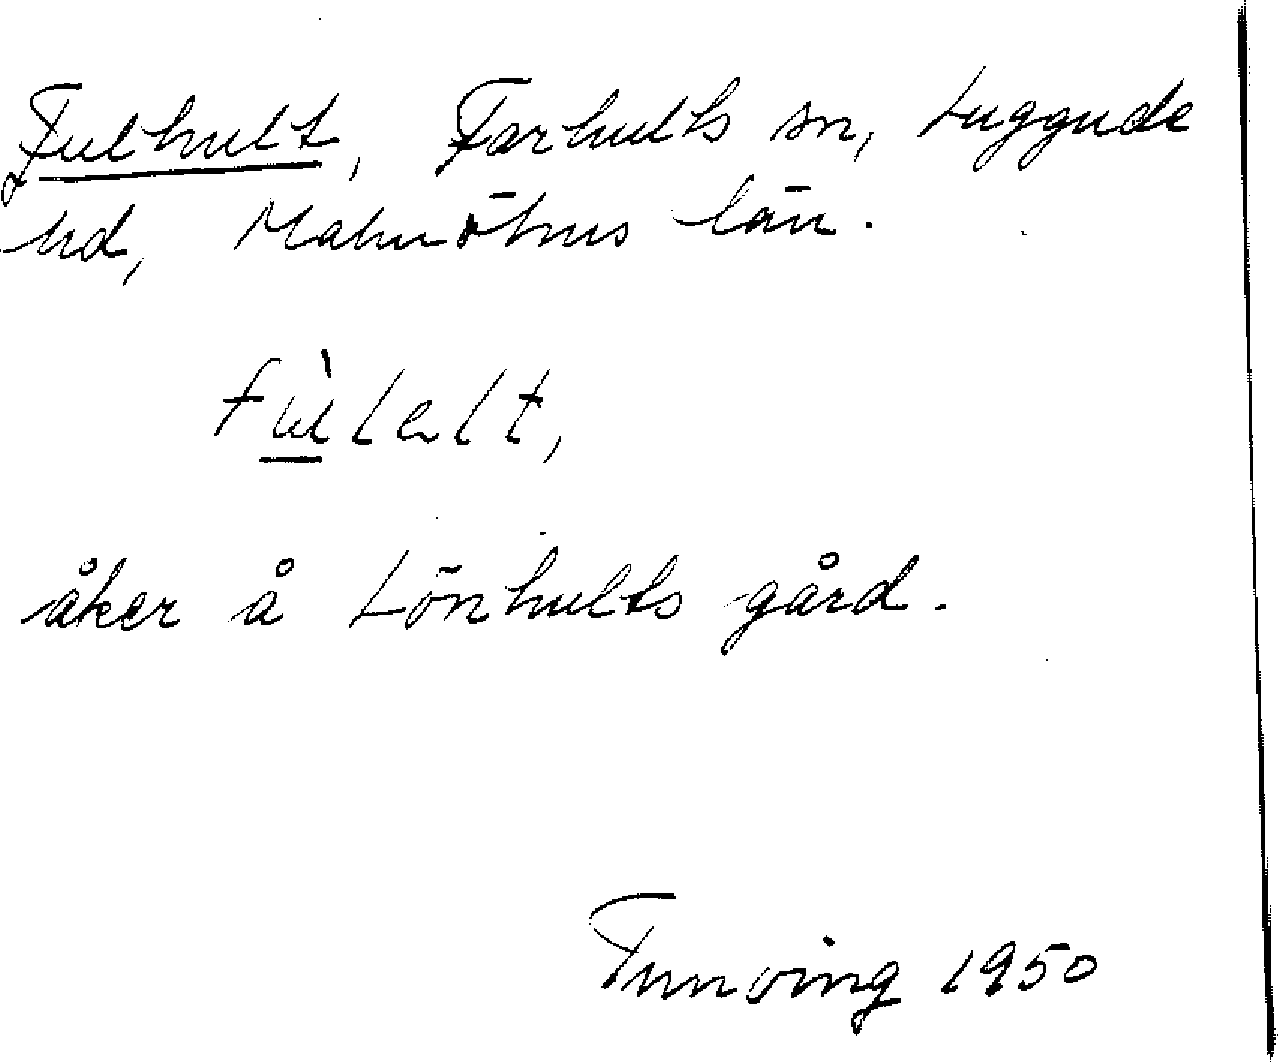 Fulhult, Farhults sn, Luggude
hd, Malmöhus län.
fù̲lalt,
åker å Lönhults gård.
Tunving 1950